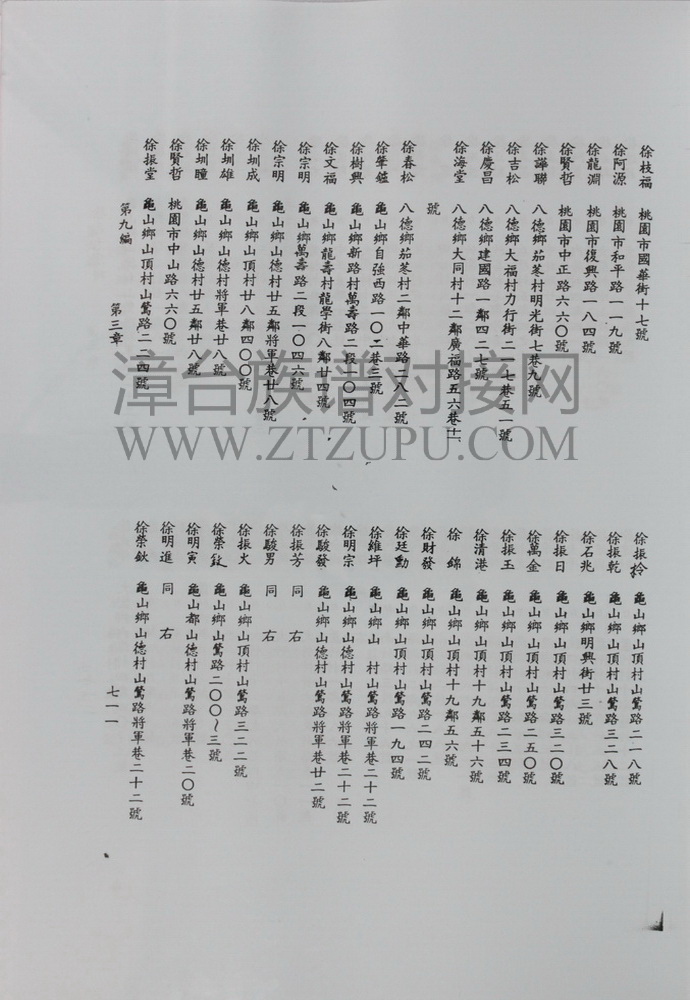 徐枝福 桃園市國華街十七號
徐阿源 桃園市和平路一一九號
徐龍淵 桃園市復興路一八四號
徐賢哲 桃園市中正路六六〇號
徐譁聯 八德鄉茄苳村明光街七巷九號
徐吉松 八德鄉大福村力行街二一七巷五一號
徐慶昌 八德鄉建國路一鄰四二七號
徐海堂 八德鄉大同村十二鄰廣福路五六巷十一
號
徐春松 八德鄉茄苳村二鄰中華路二八二號
徐肇鑑 龜山鄉自強西路一〇二巷三號
徐樹興 龜山鄉新路村萬壽路二段一〇四號
徐文福 龜山鄉龍壽村龍學街八鄰廿四號
徐宗明 龜山鄉萬壽路二段一〇四六號
徐宗明 龜山鄉山德村廿五鄰將軍巷廿八號
徐圳成 龜山鄉山頂村廿八鄰四〇〇號
徐圳雄 龜山鄉山德村將軍巷廿八號
徐圳瞳 龜山鄉山德村廿五鄰廿八號
徐賢哲 桃園市中山路六六〇號
徐振堂 龜山鄉山頂村山鶯路二二四號
第九編 第三章
徐振拎 龜山鄉山頂村山鶯路二一八號
徐振乾 龜山鄉山頂村山鶯路三二八號
徐石兆 龜山鄉明興街廿三號
徐振日 龜山鄉山頂村山鶯路三二〇號
徐萬金 龜山鄉山頂村山鶯路二五〇號
徐振玉 龜山鄉山頂村山鶯路二三四號
徐清港 龜山鄉山頂村十九鄰五十六號
徐錦 龜山鄉山頂村十九鄰五六號
徐財發 龜山鄉山頂村山鶯路二四二號
徐廷勳 龜山鄉山頂村山鶯路一九四號
徐維坪 龜山鄉山 村山鶯路將軍巷二十二號
徐明宗 龜山鄉山德村山鶯路將軍巷二十二號
徐駿發 龜山鄉山德村山鶯路將軍巷廿二號
徐振芳 同右
徐駿男 同右
徐振火 龜山鄉山頂村山鶯路三二二號
徐榮錠 龜山鄉山鶯路二〇〇~三號
徐明寅 龜山都山德村山鶯路將軍巷二〇號
徐明進 同右
徐榮欽 龜山鄉山德村山鶯路將軍巷二十二號
七一一
漳台族谱对接网
WWW.ZTZUPU.COM